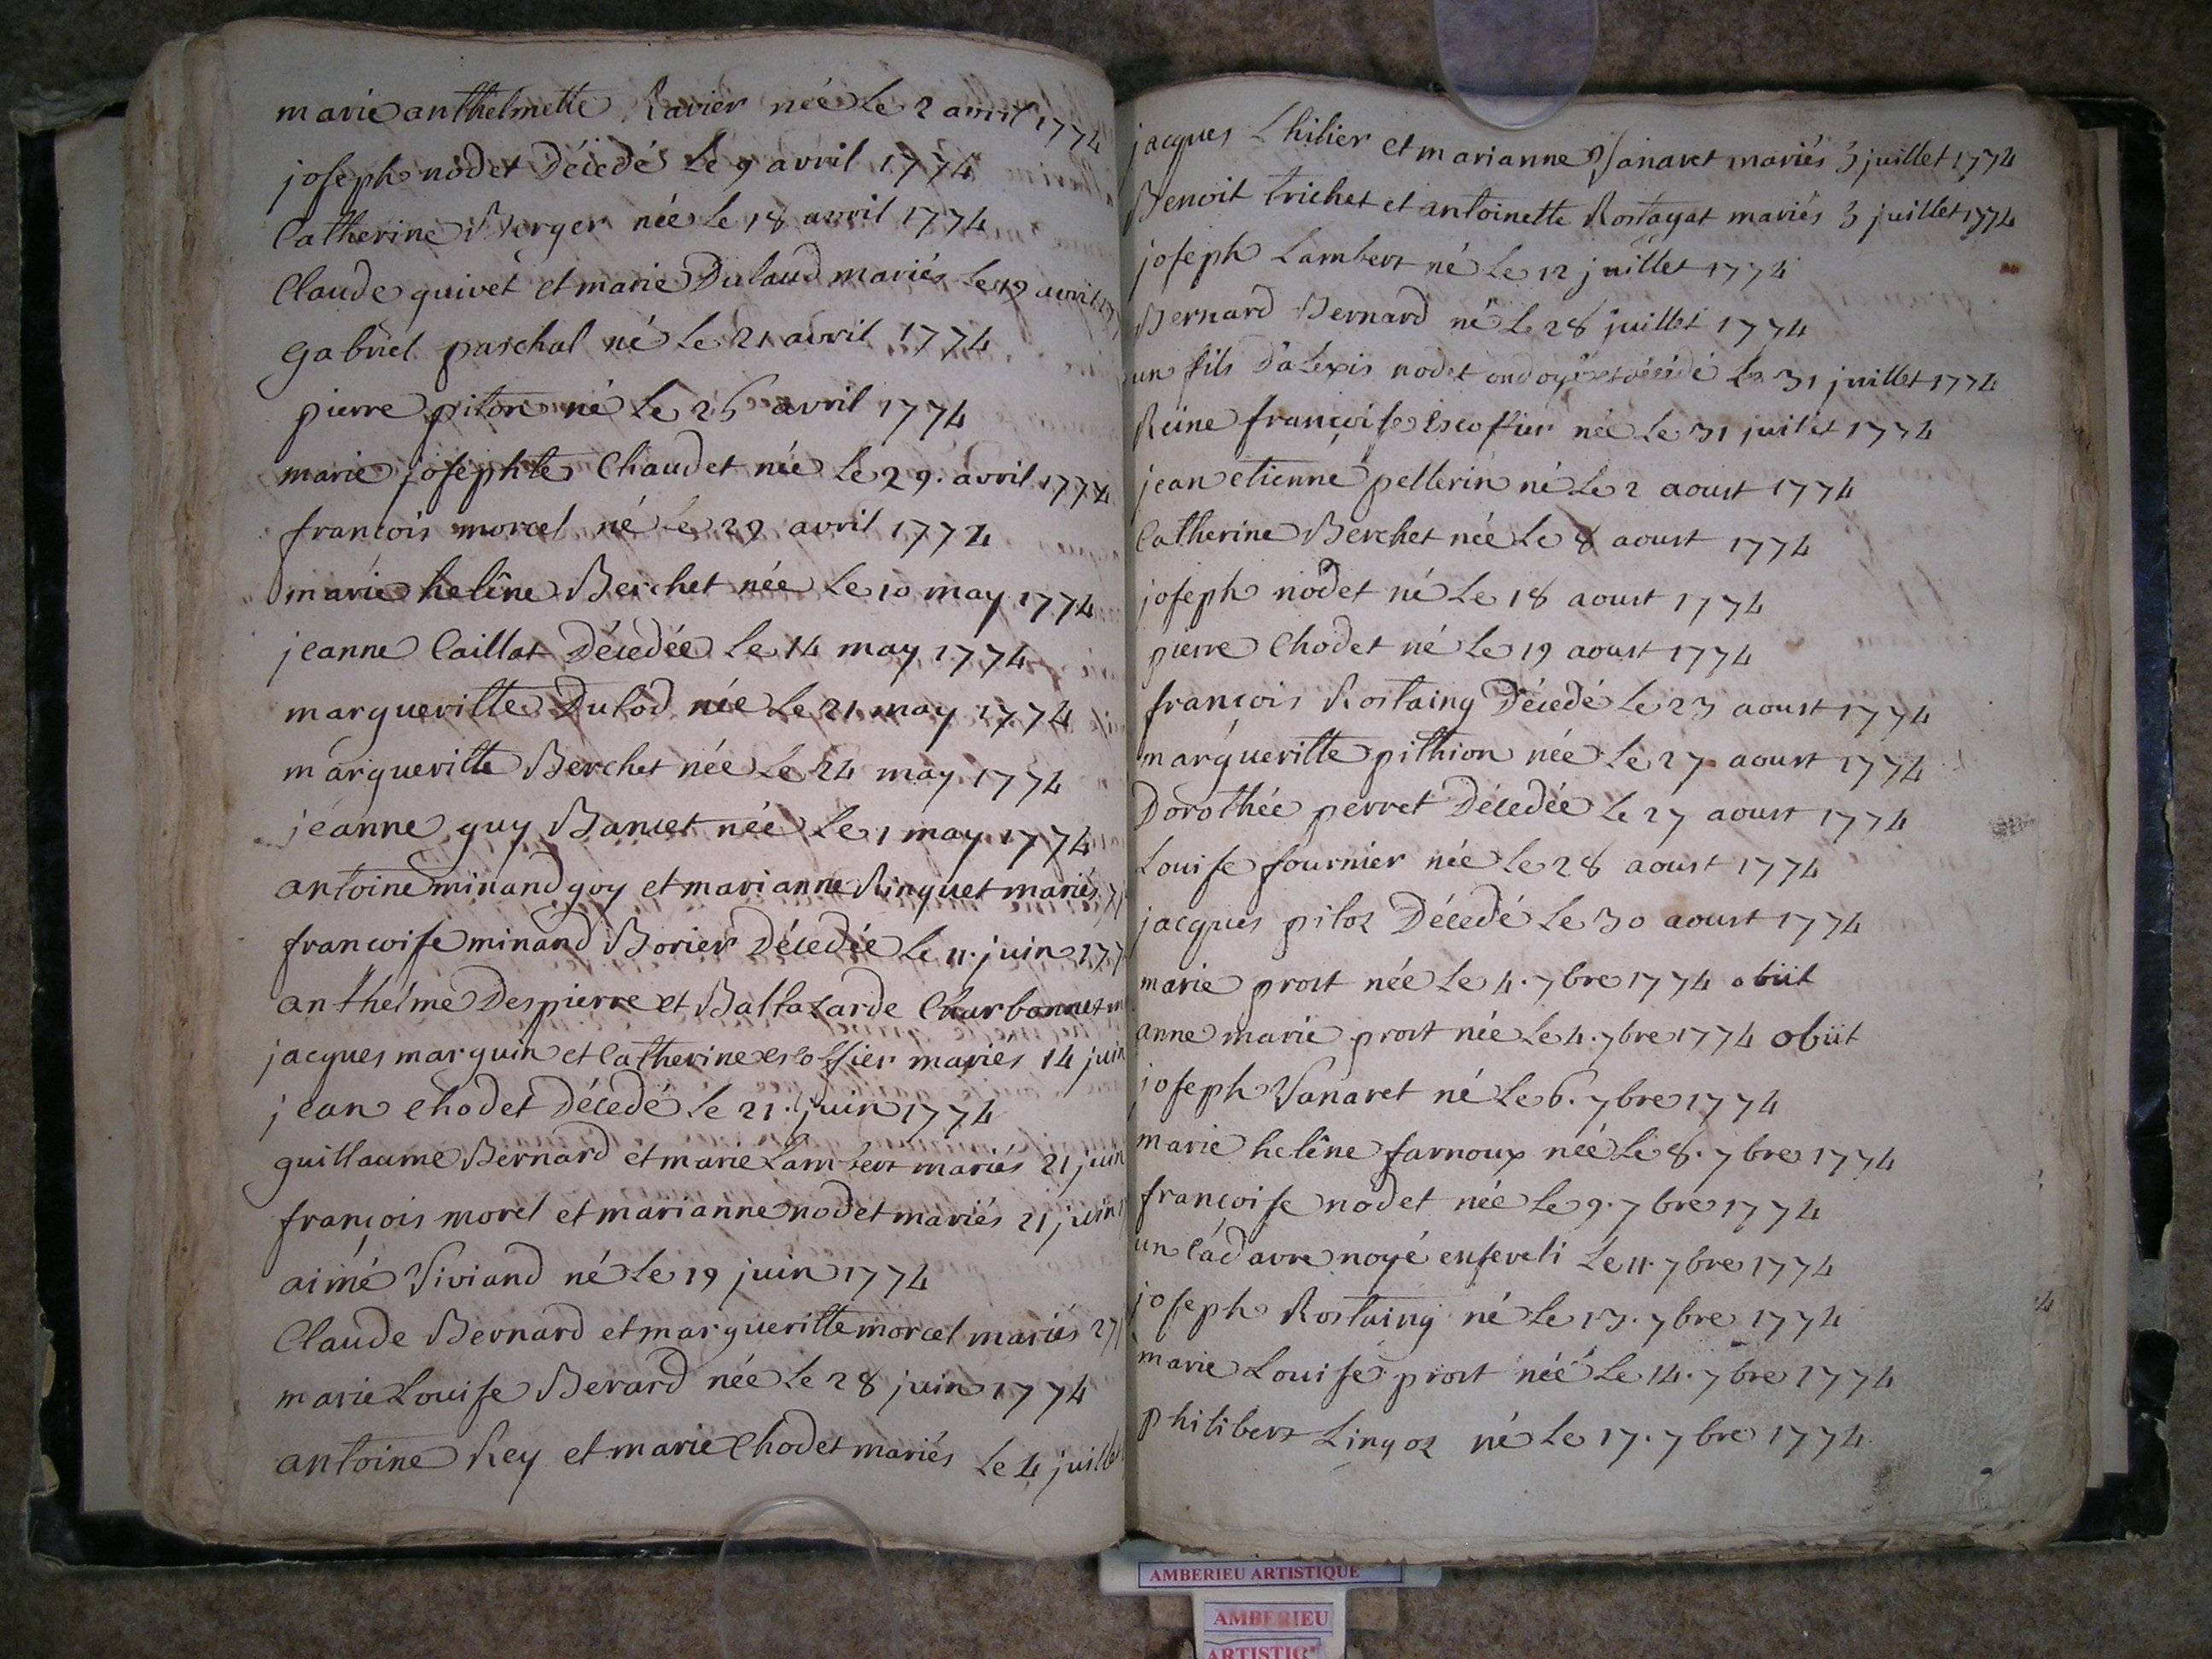 marie anthelmette Ravier née Le 2 avril 1774
joseph nodet Décedé Le 9 avril 1774
Catherine Berger née Le 18 avril 1774
Claude quivet et marie Dulaud mariés Le 19 avril 177
Gabriel paschal né Le 21 avril 1774
pierre piton né Le 26 avril 1774
marie josephte Chaudet née Le 29. avril 1774
francois morcel né Le 29 avril 1774
marie helêne Berchet née Le 10 may 1774
jeanne Caillat Décedée Le 14 may 1774
margueritte Dulod née Le 21 may 1774
margueritte Berchet née Le 24 may 1774
jeanne guy Bancet née Le 1 may 1774
antoine minand goy et marianne Ringuet mariés 7
francoise minand Borier Décedée Le 11. juin 177
anthelme Despierre et Baltazarde Charbonnet m
jacques marguin et Catherine escoffier mariés 14 juin
jean Chodet Décedé Le 21. juin 1774
guillaume Bernard et marie Lambert mariés 21 juin
françois morel et marianne nodet mariés 21 juin
aimé Viviand né Le 19 juin 1774
Claude Bernard et margueritte morcel mariés 27
marie Louise Berard née Le 28 juin 1774
antoine Rey et marie Chodet mariés Le 4 juillet
jacques Lhilier et marianne Vanaret mariés 3 juillet 1774
Benoit trichet et antoinette Rostagat mariés 3 juillet 1774
joseph Lambert né Le 12 juillet 1774
Bernard Bernard né Le 28 juillet 1774
un fils d'alexis nodet ondoyé et décédé Le 31 juillet 1774
Reine françoise Escoffier née Le 31 juilet 1774
jean etienne pellerin né Le 2 aoust 1774
Catherine Berchet née Le 8 aoust 1774
joseph nodet né Le 18 aoust 1774
pierre Chodet né Le 19 aoust 1774
françois Rostaing Décedé Le 23 aoust 1774
margueritte pithion née Le 27 aoust 1774
Dorothée perret Décedée Le 27 aoust 1774
Louise fournier née Le 28 aoust 1774
jacques piloz Décedé Le 30 aoust 1774
marie prost née Le 4. 7bre 1774 obiit
anne marie prost née Le 4. 7bre 1774 obiit
joseph Vanaret né Le 6. 7bre 1774
marie helêne farnoux née Le 8. 7bre 1774
françoise nodet née Le 9. 7bre 1774
un Cadavre noyé enseveli Le 11. 7bre 1774
joseph Rostaing né Le 13. 7bre 1774
marie Louise prost née Le 14. 7bre 1774
philibert Lingoz né Le 17. 7bre 1774
AMBERIEU ARTISTIQUE
AMBERIEU
ARTISTIQ